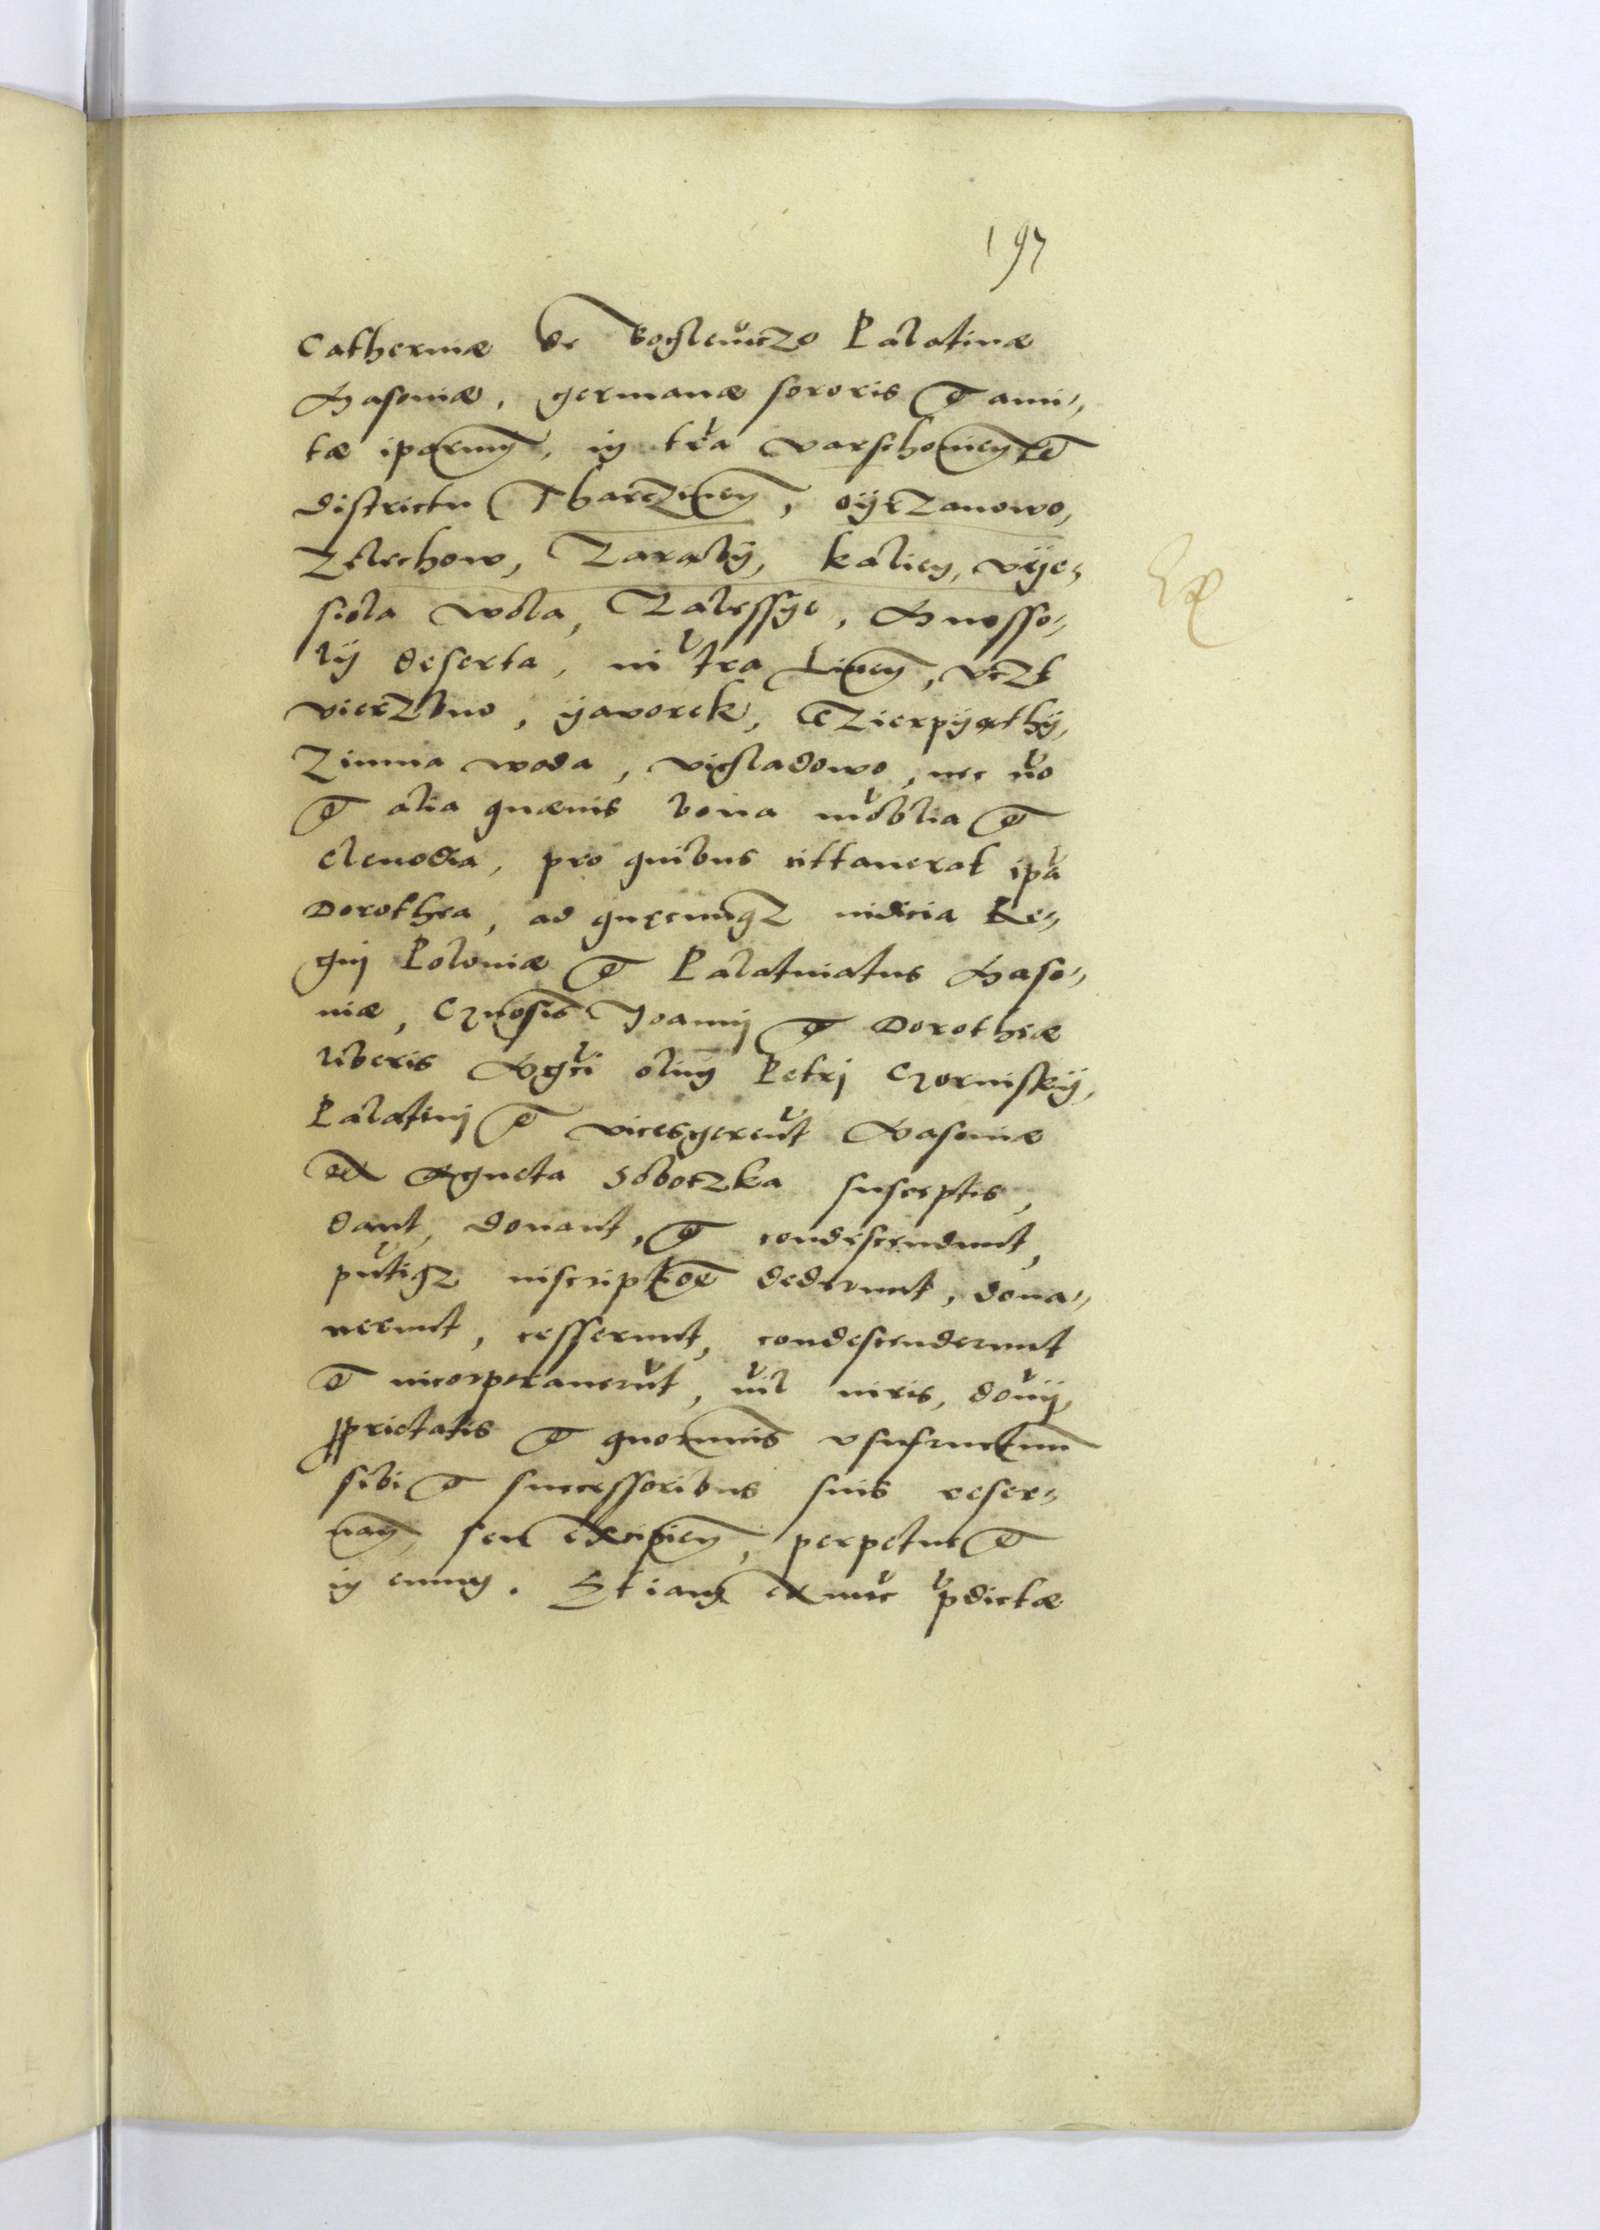 197
Catherinæ de Boglewicze Palatinæ
Masoviæ, germanæ sororis et ami,,
tæ ipārum, in tra varschovien et
districtu Tharczinen, oyrzanowo,
Zelechow, Zaraby, kalien, vye,,
siola wola, Zalessye, Mnosso,,
ly deserta, in tra Liven, vczt
vierzbno, yavorek, Czierpyathy,
Zimna woda, vigladowo, nec no
et alia quævis bona mobilia et
clenodia, pro quibus cittaverat ipa
Dorothea, ad quęcunqz iudicia Re,,
gni Poloniæ et Palatinatus Maso,,
viæ, Gnosis Joanni et Dorotheæ
liberis Mgci olim Petri Gorinsky,
Palatini et vicesgerent Masoviæ
ex Agneta Sobotzka susceptis,
dant, donant, et condescendunt,
pntiqz inscriptoe dederunt, dona,,
verunt, cesserunt, condescenderunt
et incorporaverut, nil iuris, donij,
proprietatis et quorumvis usufructuum
sibi et successoribus suis reser,,
van, seu excipien, perpetue et
in evum. Et iam exnuc pdictæ